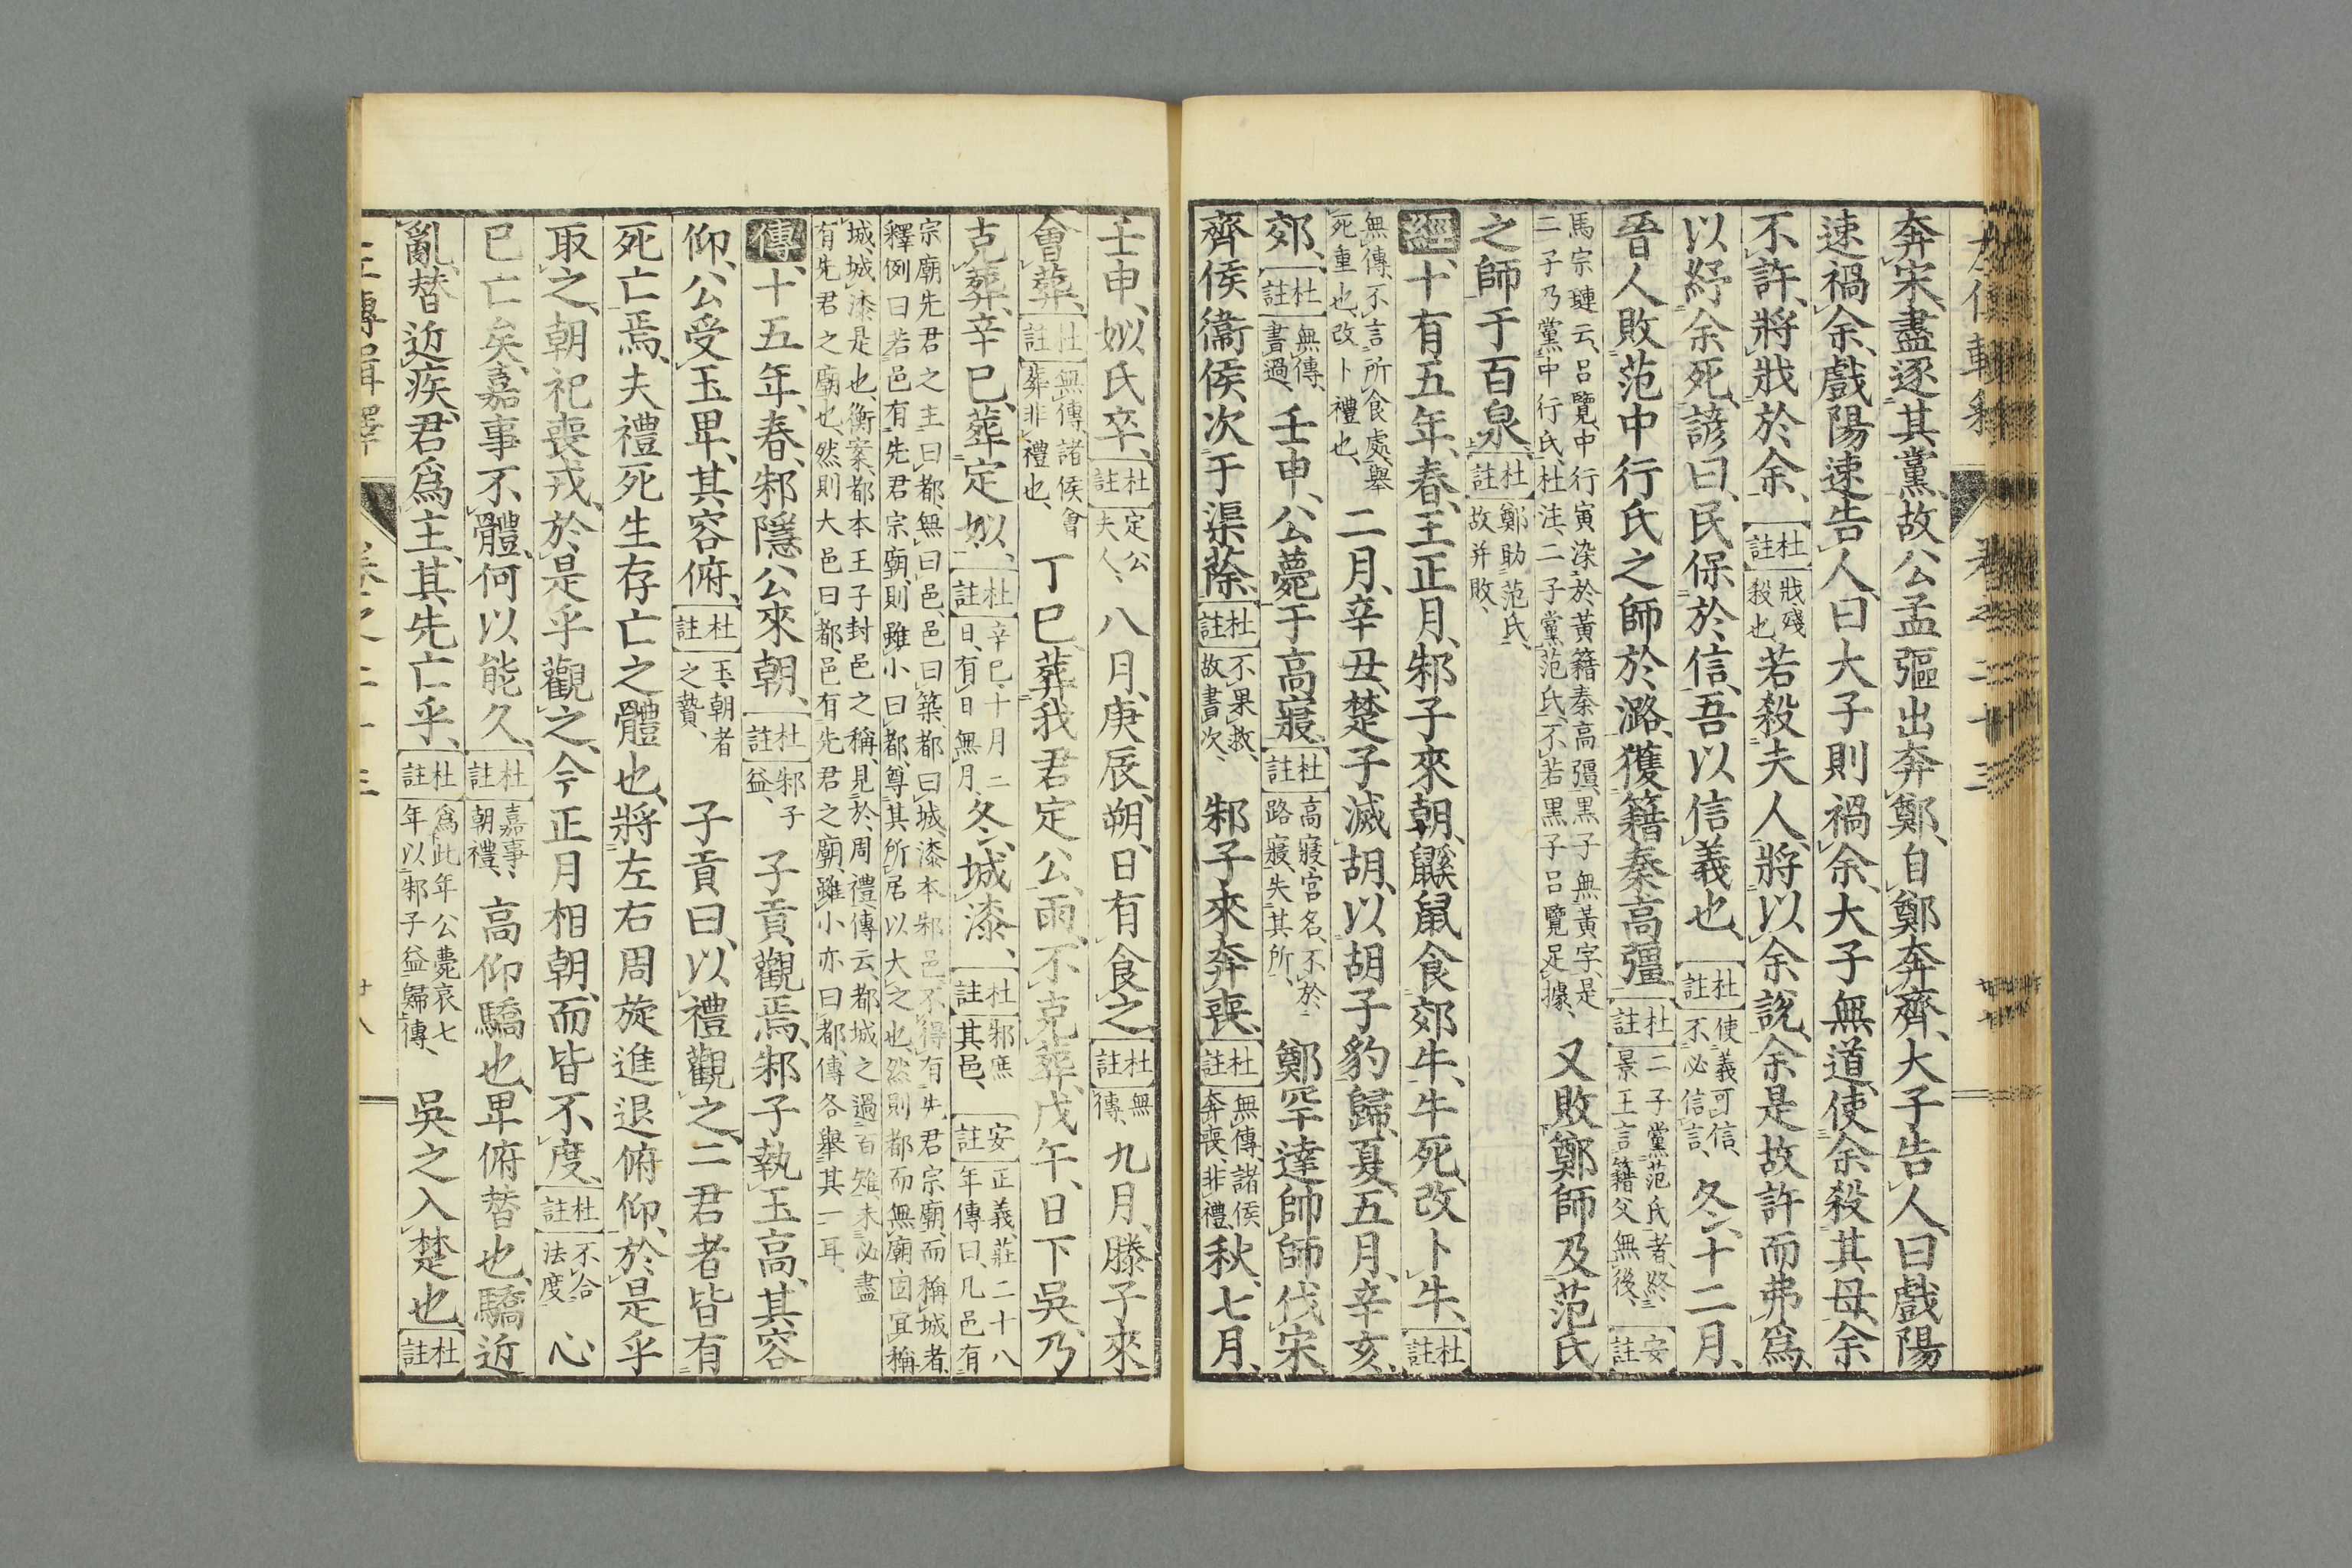 奔宋、盡逐其黨、故公孟彄出奔鄭、自鄭奔齊、大子告人曰戲陽
速禍余、戲陽速告人曰大子則禍余、大子無道、使余殺其母、余
不許、將戕於余、杜註戕殘殺也、若殺夫人、將以余說、余是故許而弗爲、
以紓余死、諺曰、民保於信、吾以信義也、杜註使義可信、不必信言、冬、十二月、
晉人敗范中行氏之師於潞、獲籍秦高彊、杜註二子黨范氏者、終景王言籍父無後、安註
馬宗璉云、呂覽、中行寅染於黃籍秦高彊、黑子無黃字、是
二子乃黨中行氏、杜注、二子黨范氏、不若黑子呂覽足據、
又敗鄭師及范氏
之師于百泉、杜註鄭助范氏、故并敗、
經、十有五年、春、王正月、邾子來朝、鼷鼠食郊牛、牛死、改卜牛、杜註
無傳、不言所食處、舉
死重也、改卜禮也、
二月、辛丑、楚子滅胡、以胡子豹歸、夏、五月、辛亥、
郊、杜註無傳、書過、壬申、公薨于高寢、杜註高寢宮名、不於路寢、失其所、鄭罕達帥師伐宋、
齊侯衞侯次于渠蒢、杜註不果救、故書次、邾子來奔喪、杜註無傳、諸侯奔喪、非禮、秋、七月、
壬申、姒氏卒、杜註定公夫人、八月、庚辰、朔、日有食之、杜註無傳、九月、滕子來
會葬、杜註無傳、諸侯會葬非禮也、丁巳、葬我君定公、雨、不克葬、戊午、日下吳、乃
克葬、辛巳、葬定姒、杜註辛巳、十月二日、有日無月、冬、城漆、杜註邾庶其邑、安註正義、莊二十八年傳曰、凡邑有
宗廟先君之主曰都、無曰邑、邑曰築、都曰城、漆本邾邑、不得有先君宗廟、而稱城者、
釋例曰、若邑有先君宗廟、則雖小曰都、尊其所居以大之也、然則都而無廟固宜稱
城、城漆是也、衡案、都本王子封邑之稱、見於周禮、傳云、都城之過百雉、未必盡
有先君之廟也、然則大邑曰都、邑有先君之廟、雖小亦曰都、傳各舉其一耳、
傳、十五年、春、邾隱公來朝、杜註邾子益、子貢觀焉、邾子執玉高、其容
仰、公受玉卑、其容俯、杜註玉、朝者之贄、子貢曰、以禮觀之、二君者皆有
死亡焉、夫禮死生存亡之體也、將左右周旋進退俯仰、於是乎
取之、朝祀喪戎、於是乎觀之、今正月相朝、而皆不度、杜註不合法度、心
已亡矣、嘉事不體、何以能久、杜註嘉事、朝禮、高仰驕也、卑俯替也、驕近
亂、替近疾、君爲主、其先亡乎、杜註爲此年公薨哀七年以邾子益歸傳、吳之入楚也、杜註